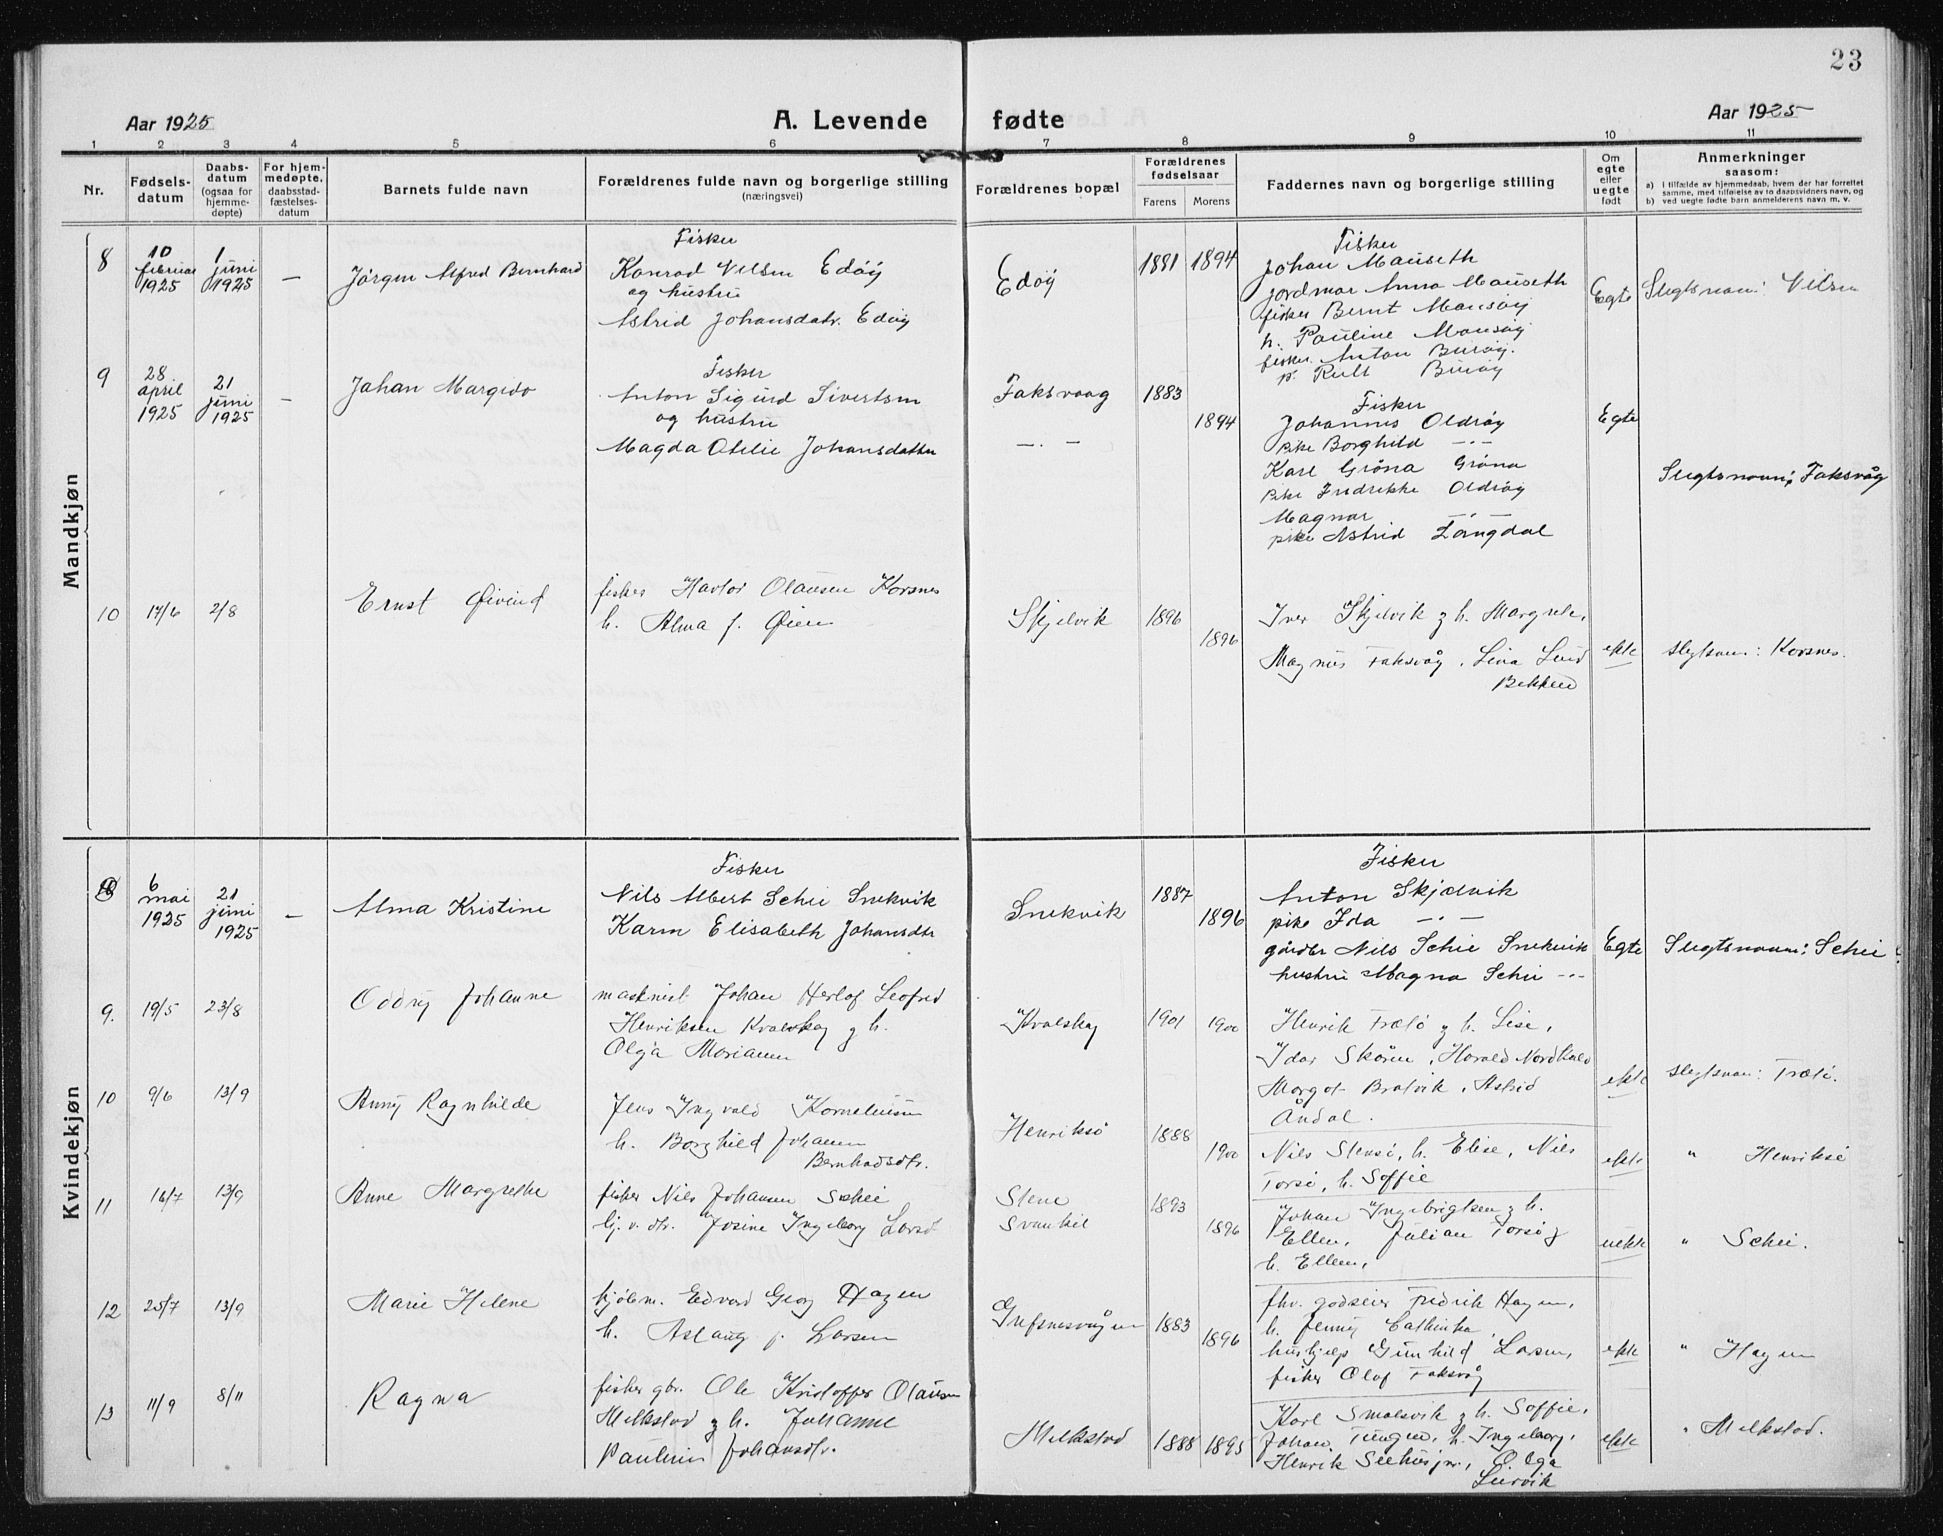 23
Aar 1925
A. Levende fødte
Aar 1925
1 2 3 4 5 6 7 8 9 10 11
Nr.
Fødsels-
datum
Daabs-
datum
(ogsaa for
hjemme-
døpte)
For hjem-
medøpte.
daabsstad-
fæstelses-
datum
Barnets fulde navn
Forældrenes fulde navn og borgerlige stilling
(næringsvei)
Forældrenes bopæl
Forældrenes
fødselsaar
Farens Morens
Faddernes navn og borgerlige stilling
Om
egte
eller
uegte
født
Anmerkninger
saasom:
a) i tilfælde av hjemmedaab, hvem der har forrettet
samme, med tilføielse av to daapsvidners navn, og
b) ved uegte fødte barn anmelderens navn m. v.
Mandkjøn
8
10
februar
1925
1
juni
1925
—
Jörgen Alfred Bernhard
Fisker
Konrad Nilsen Edöy
og hustru
Astrid Johansdatr. Edöy
Edöy
1881 1894
Fisker
Johan Mauseth
jordmor Anna Mauseth
fisker Bernt Mausöy
h. Pauline Mausöy
fisker Anton Buröy.
p. Rut Buröy
Egte
Slegtsnavn: Nilsen
9
28
april
1925
21
juni
1925
—
Johan Margido
Fisker
Anton Sigurd Sivertsen
og hustru
Magda Otilie Johansdatter
Faksvaag
— . —
1883
1894
Fisker
Johannes Oldröy
pike Borghild — . —
Karl Gröna Gröna
pike Fredrikke Oldröy
Magnar — . —
pike Astrid Langdal
Egte
Slegtsnavn; Faksvåg
10
17/6
2/8
Ernst Øivind
fisker Havtor Olausen Korsnes
h. Alma f. Øien
Skjelvik
1896
1896
Iver Skjelvik g h. Margrete,
Magnus Faksvåg, Lina Lund
Bekken
ekte
slegtsnavn: Korsnes.
Kvindekjøn
8
6
mai
1925
21
juni
1925
—
Alma Kristine
Fisker
Nils Albert Schei Snekvik
Karen Elisabeth Johansdtr
Snekvik
1887
1896
Fisker
Anton Skjelvik
pike Ida — . —
gårdbr Nils Schei Snekvik
hustru Magna Schei — . —
Egte
Slegtsnavn: Schei
9.
19/5
23/8
Oddny Johanne
maskinist Johan Herlof Leofred
Henriksen Kvalskag g h.
Olga Marianne
Kvalskag
1901
1900
Henrik Tretö g h. Lise,
Idar Skören, Harald Nordkvål
Margot Bratvik, Astrid
Åndal.
ekte
slegtsnavn: Tretö.
10
9/6
13/9
Anny Ragnhilde
Jens Ingvald Korneliussen
h. Borghild Johanne
Bernhadsdtr.
Henriksö
1888
1900
Nils Stensö, h. Elise, Nils
Torsö, h. Soffie
ekte
" Henriksö
11
16/7
13/9
Anne Margrethe
fisker Nils Johansen Schei
Josine Ingeborg Larsd
Stene
1893
1896
Johan Ingebrigtsen g h.
Ellen, Julian Torsö g
h. Ellen,
uekte
" Schei.
12
25/7
13/9
Marie Helene
Edvard Georg Hagen
h. Aslaug f. Larsen
Gjefsnesvågen
1883
1896
fhv. godseier Fredrik Hagen,
h. Jenny Cathinka
hushjelp Gunhild Larsen,
fisker Olaf Faksvåg
ekte
" Hagen
13
11/9
8/11
Ragna
fisker gbr. Ole Kristoffer Olausen
Melkstad g h. Johanne
Pauline Johansdtr.
Melkstad
1888 1895
Karl Smalsvik g h. Soffie,
Johan Tungen, h. Ingeborg,
Henrik Seehus jnr., Olga
Leirvik
ekte
" Melkstad.